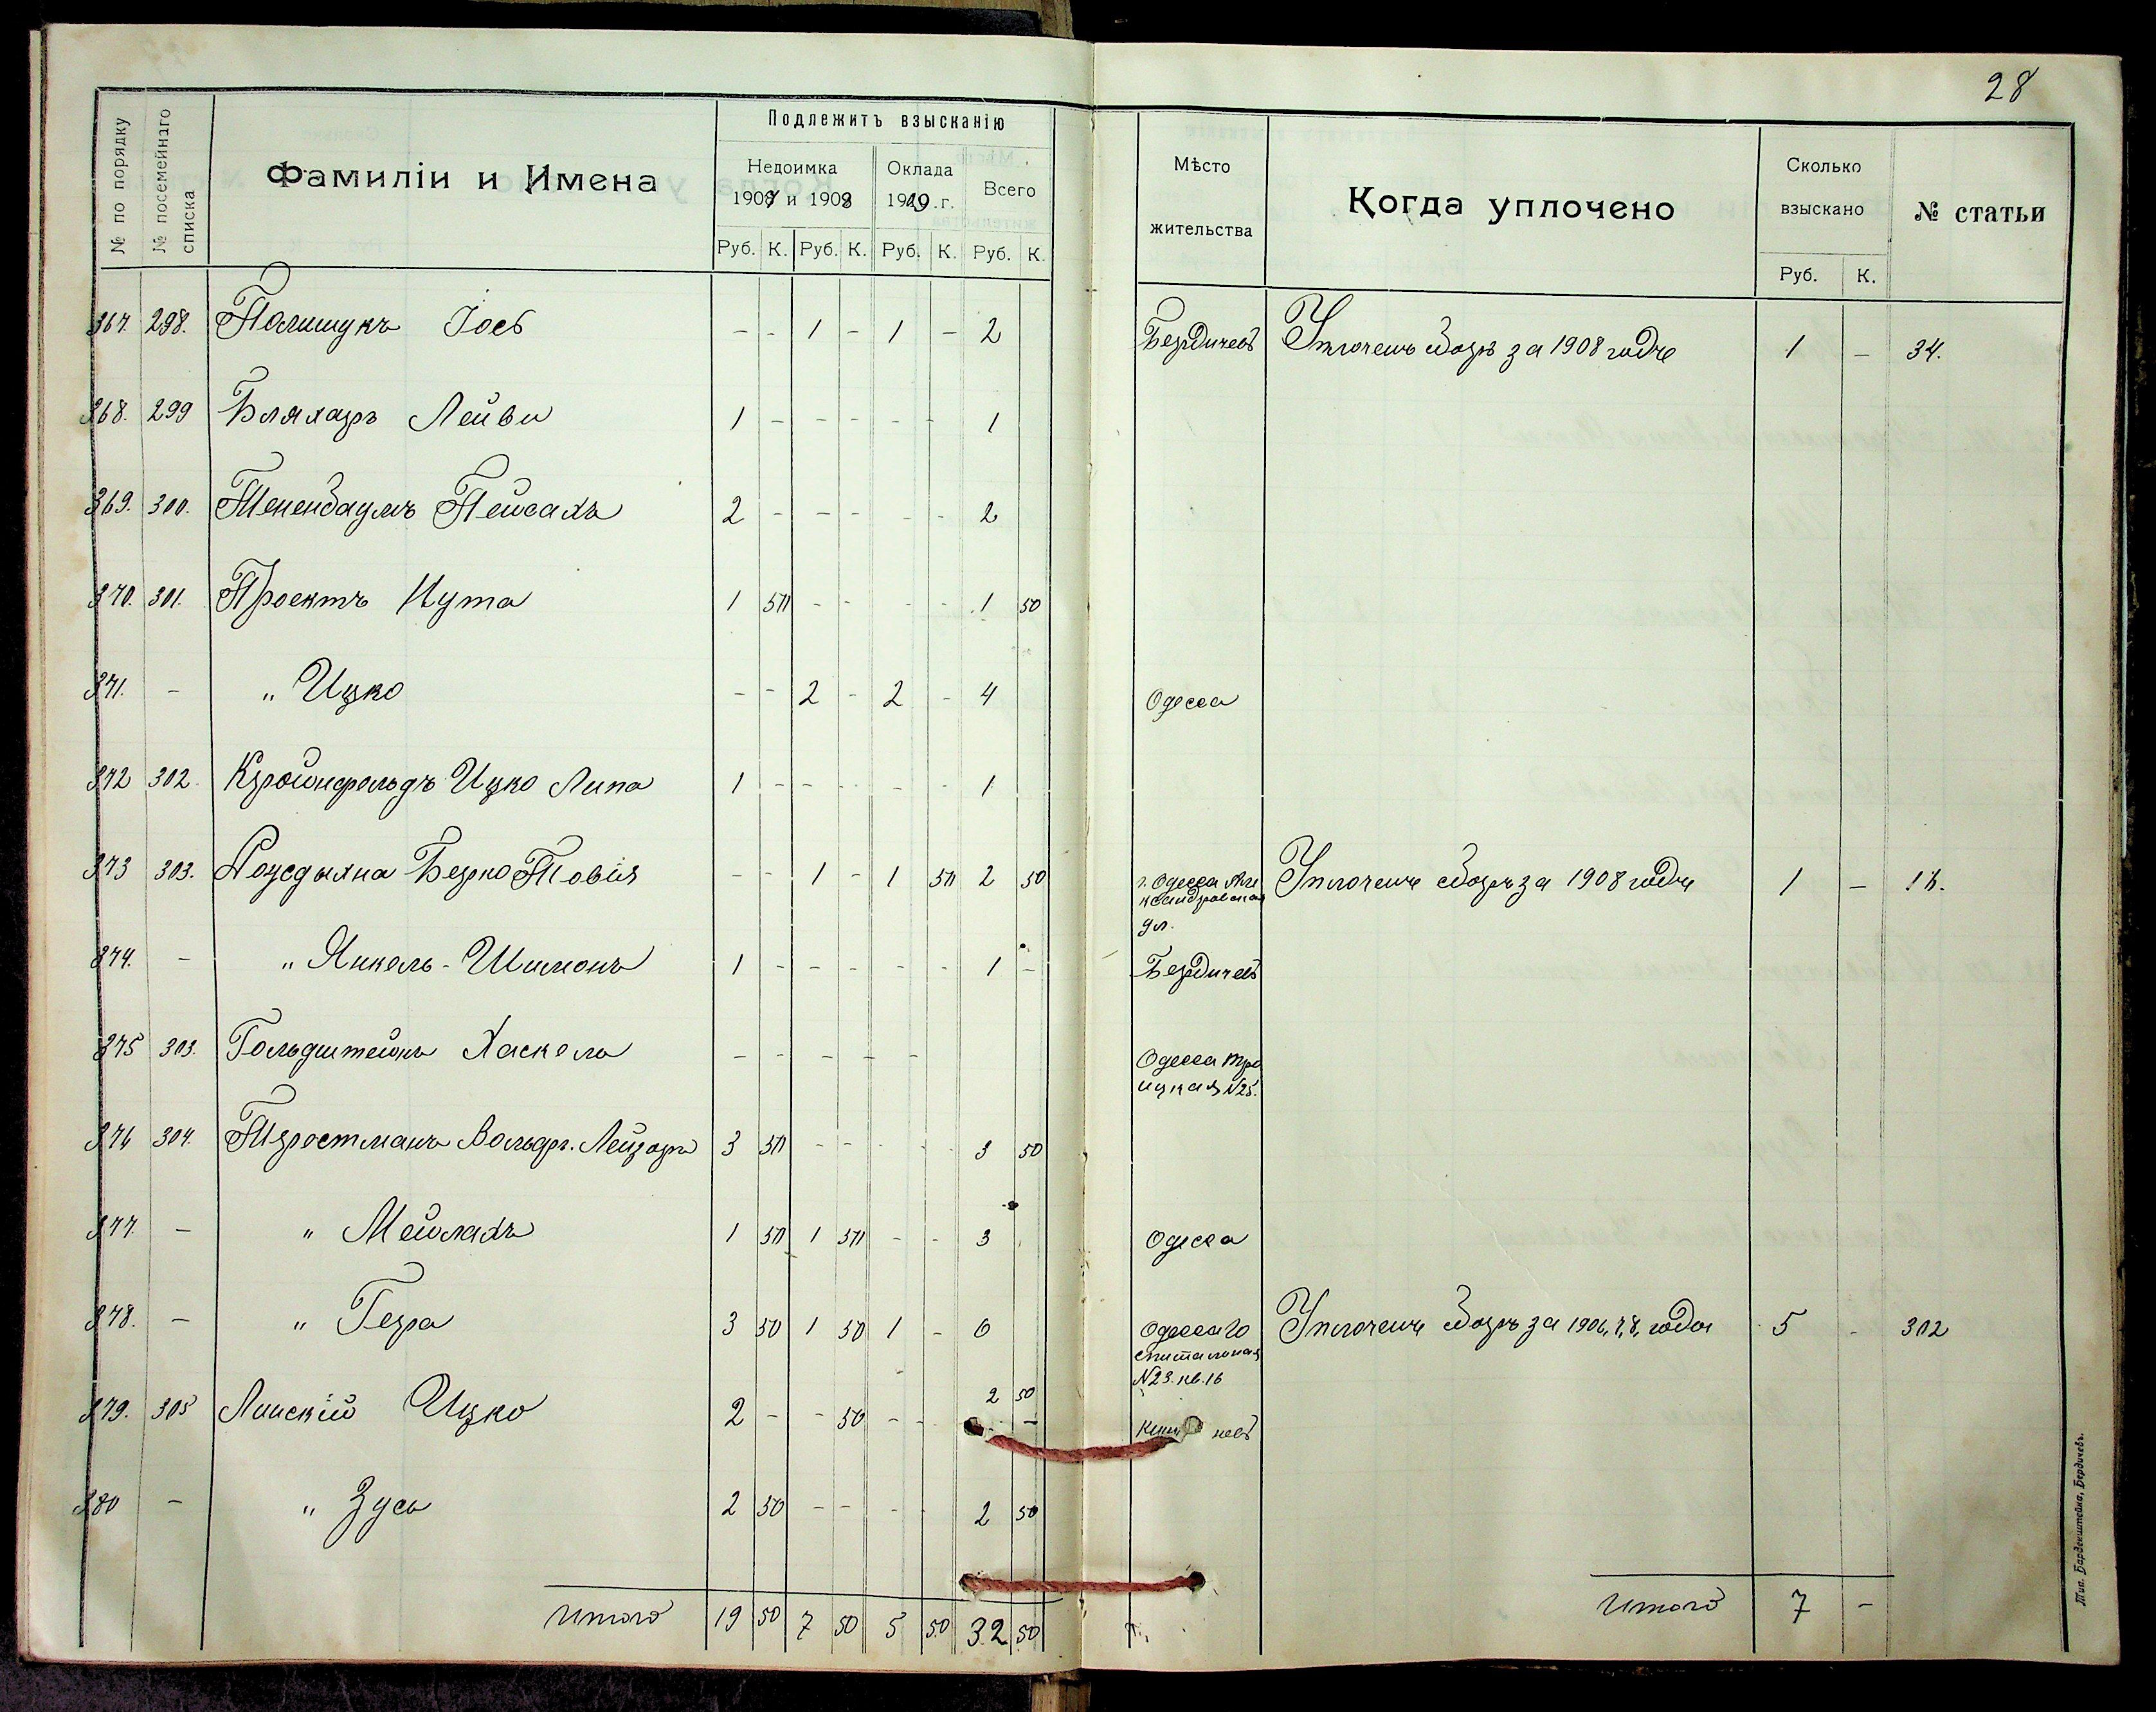 28
№ по порядку
№ посемейнаго списка
Фамиліи и Имена
Подлежитъ взысканію
Недоимка
1907 и 1908
Оклада
1909 г.
Всего
Руб. К. Руб. К. Руб. К. Руб. К.
Мѣсто
жительства
Когда уплочено
Сколько
взыскано
Руб. К.
№ статьи
367. 298. Полищукъ Іось - - 1 - 1 - 2 Бердичевъ Уплоченъ сборъ за 1908 годъ 1 - 34.
368. 299 Бляхаръ Лейви 1 - - - - - 1
369. 300. Тененбаумъ Пейсахъ 2 - - - - - 2
370. 301. Проектъ Нута 1 50 - - - - 1 50
371. - " Ицко - - 2 - 2 - 4 Одесса
372 302. Кройнфельдъ Ицко Липа 1 - - - - - 1
373 303. Берко Товія - - 1 - 1 50 2 50 г. Одесса Але
ксандровская
ул.
Уплоченъ сборъ за 1908 годъ 1 -
374. - " Янкель-Шимонъ 1 - - - - - 1 - Бердичевъ
375 303. Гольдштейнъ Хаскель - - - - - Одесса Тро
ицкая N25.
376 304. Тростманъ Вольф. Лейзоръ 3 50 - - - - 3 50
377. - " Мейлахъ 1 50 1 50 - - 3 Одесса
378. - " Гера 3 50 1 50 1 - 6 Одесса Го
спитальная
N23. кв. 16
Уплоченъ сборъ за 1906, 7, 8, годы 5 - 302
379. 305 Линскій Ицко 2 - - 50 - - 2 50 Киши невъ
380 - " Зусь 2 50 - - - - 2 50
Итого 19 50 7 50 5 50 32 50
Итого 7 -
Тип. Барденштейна, Бердичевъ.